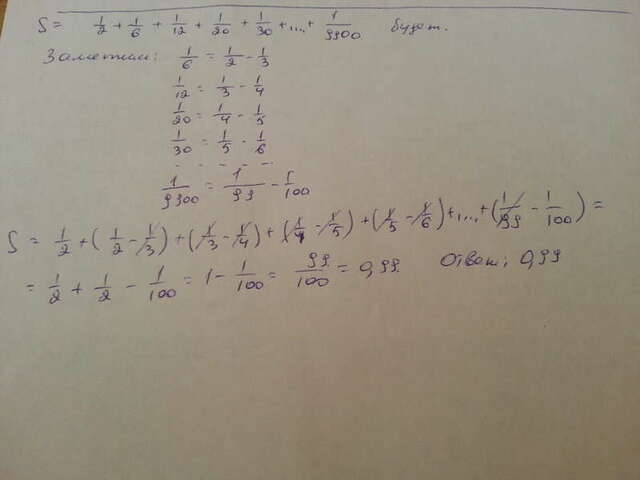 S = 1/2 + 1/6 + 1/12 + 1/20 + 1/30 + ... + 1/9900 будет.
Заметим: 1/6 = 1/2 - 1/3
1/12 = 1/3 - 1/4
1/20 = 1/4 - 1/5
1/30 = 1/5 - 1/6
- - - - -
1/9900 = 1/99 - 1/100
S = 1/2 + (1/2 - 1/3) + (1/3 - 1/4) + (1/4 - 1/5) + (1/5 - 1/6) + ... + (1/99 - 1/100) =
= 1/2 + 1/2 - 1/100 = 1 - 1/100 = 99/100 = 0,99. Ответ: 0,99